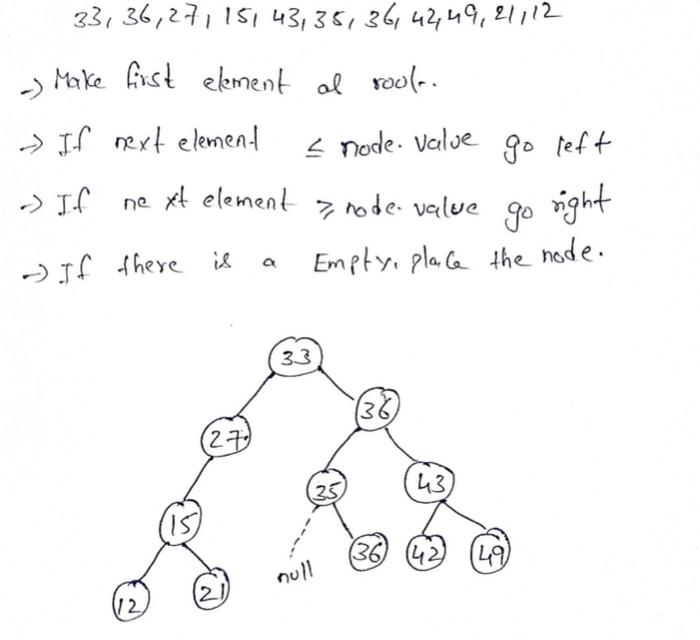 33, 36, 27, 15, 43, 35, 36, 42, 49, 21, 12
-> Make first element al root.
-> If next element ≤ node. value go left
-> If ne xt element ≥ node. value go right
-> If there is a Empty, place the node.
33
36
27
35
43
15
36
42
49
null
12
21